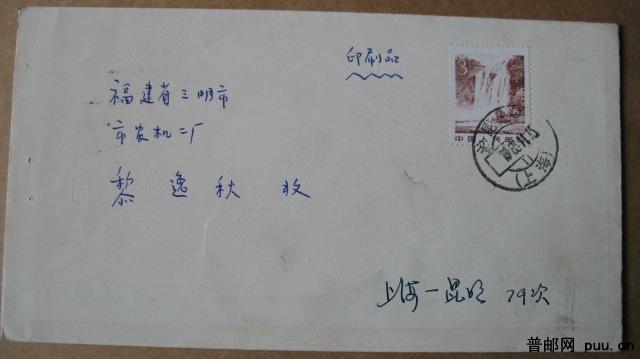 印刷品
福建省三明市
市农机二厂
黎逸秋 收
上海一昆明 79次
3
中国人民邮政
普邮网 puu.cn